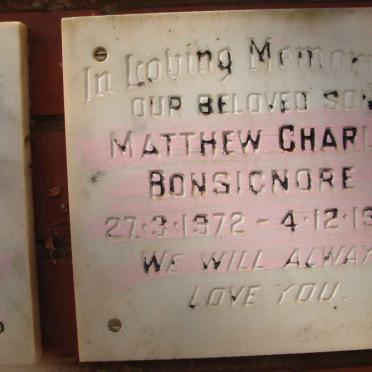 In Loving Memor
OUR BELOVED SON
MATTHEW CHARL
BONSIGNORE
27·3·1972 - 4·12·19
WE WILL ALWAY
LOVE YOU.